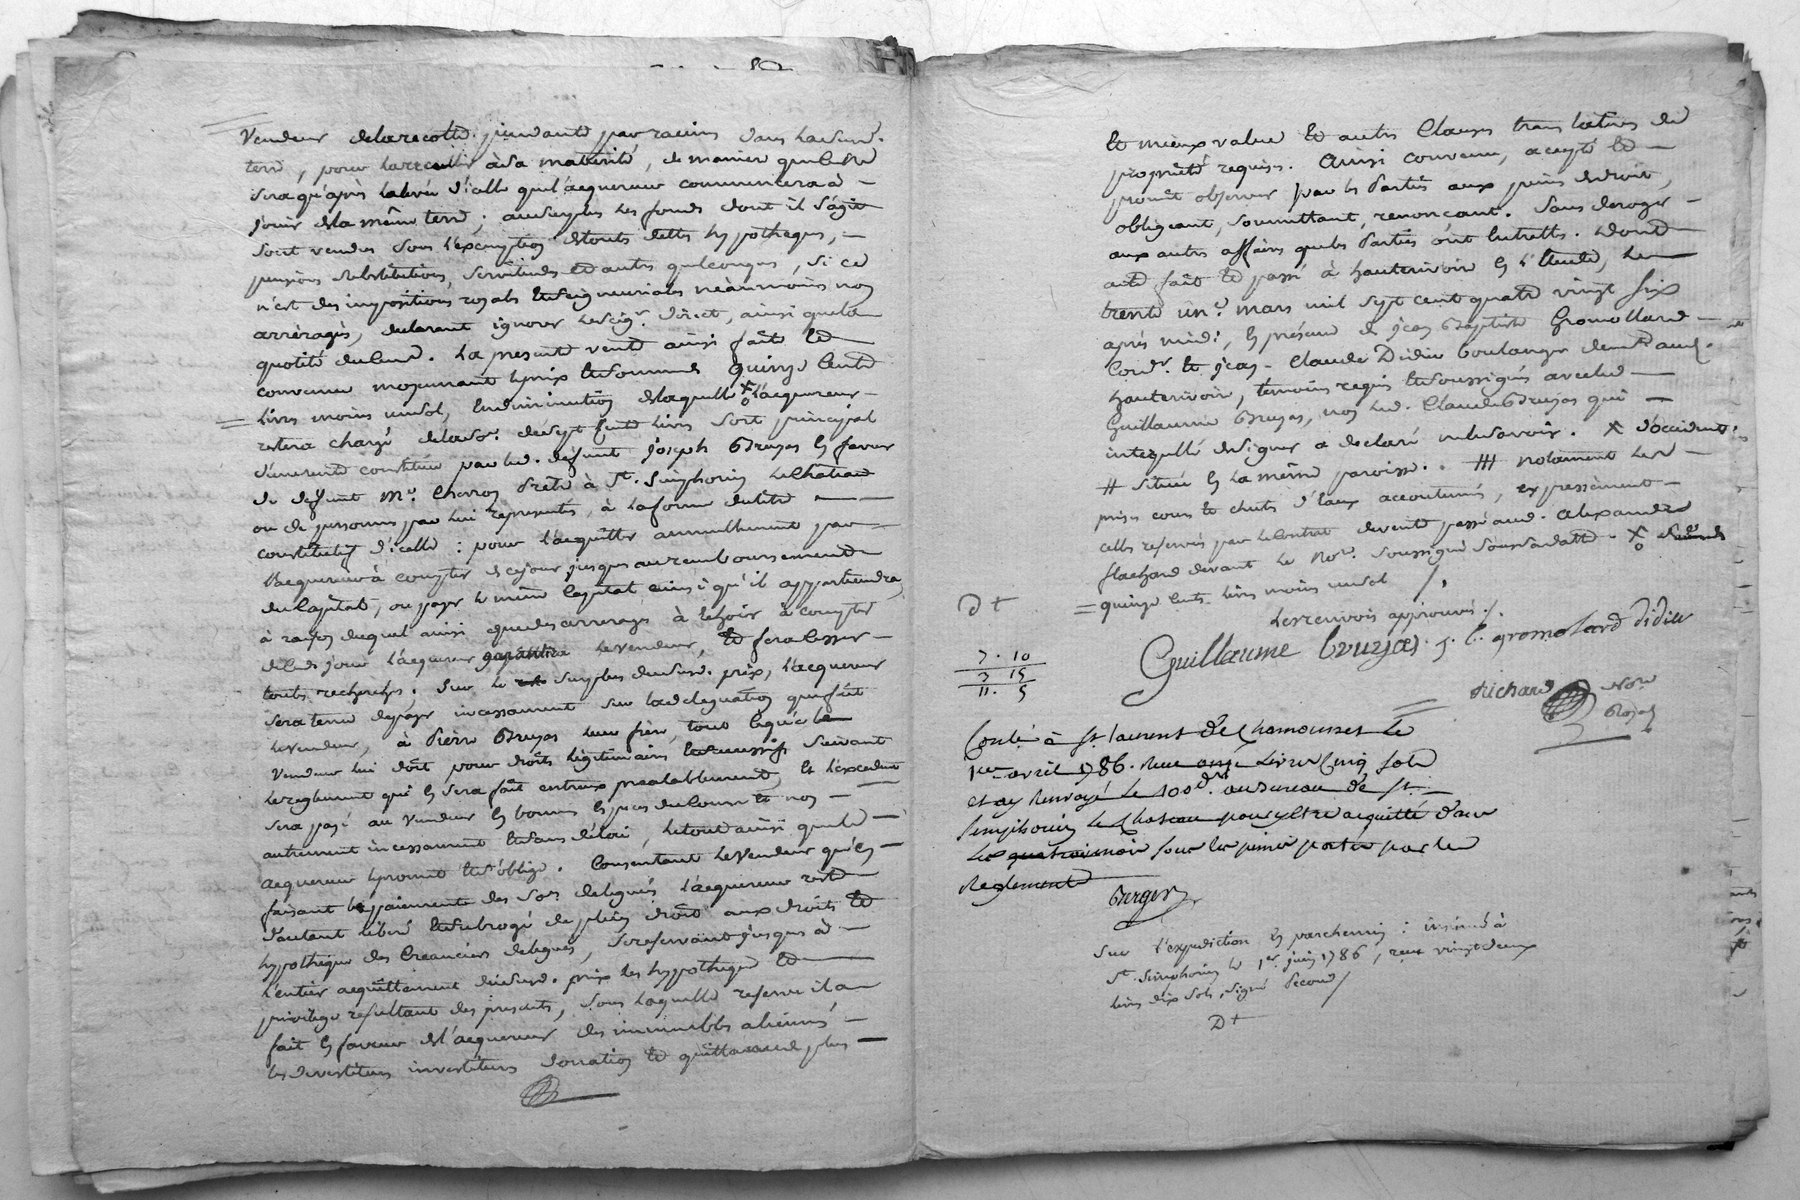 Vendeur de la recolte pendante par racines dans lad. sud.
terre, pour la recueillir à sa maturité, de maniere que ce ne
sera qu'après la levée d'icelle que l'acquereur commencera à
jouir de la même terre; au surplus les fonds dont il s'agit
sont vendus sous l'exemption de touts dettes hypotheques,
pensions, substitutions, servitudes et autres quelconques, si ce
n'est des impositions royales et seigneuriales néanmoins non
arréragés, declarant ignorer le seigr. direct, ainsi que la
quotité du cens. La presente vente ainsi faite et
convenue moyennant le prix et somme de quinze cents
livres moins un sol, en diminution de laquelle x l'acquereur
restera chargé de la so. de sept cents livres sort principal
de rente constituée par led. defunt joseph Bruyas en faveur
de deffunt Mr. Charron Prêtre à St. Simphorien le Château
ou de personnes par lui representés, à la forme du titre
constitutif d'icelle : pour l'acquitter annuellement par
l'acquereur à compter de ce jour jusques au remboursement
du Capital, ou payer le même Capital ainsi qu'il appartiendra,
à raison duquel ainsi que des arrerages à échoir à compter
de ced. jour l'acquereur garantira le vendeur, et fera cesser
touts recherches. Sur le surplus dud. prix, l'acquereur
sera tenu de payer incessamment sur la delegation que fait
le vendeur, à Pierre Bruyas leur frere, tout ce que le
vendeur lui doit pour droits légitimaires et successifs suivant
le reglement qui en sera fait entreux prealablement, et l'excedent
sera payé au vendeur en bonnes especes du cours et non
autrement incessamment et sans délai, le tout ainsi que le
acquereur le promet et s'oblige. Consentant le vendeur qu'en
faisant le paiement des sos. deleguées l'acquereur reste
d'autant liberé et subrogé de plein droit aux droits et
hypotheque des Creanciers delegués, se reservant jusques à
l'entier acquittement dud. prix les hypotheque et
privilege resultant des presents, sous laquelle reserve il a
fait en faveur de l'acquereur des immeubles alienés
les devestitures investitures donation et quittance de plus
et mieux value et autres Clauses translatives de
propriété requises. Ainsi convenu, accepté et
promis observer par les Parties aux peines de droit,
obligeant, soumettant, renonçant. Sans deroger
aux autres affaires que les Parties ont entr'elles. Dont
acte fait et passé à hauterivoire en l'Etude, le
trente un. mars mil sept cent quatre vingt six
après midi, en présence de jean Baptiste Gromollard
Cordr. et jean-Claude Didier boulanger demt. aud.
hauterivoire, temoins requis et soussignés avec led.
Guillaume Bruyas, non led. Claude Bruyas qui
interpellé de signer a declaré ne le savoir. x d'occident
# située en la même paroisse. ## notament les
prises cours et chutes d'eaux accoutumés, expressément
celles reservés par le Contrat de vente passé aud. Alexandre
flachard devant le Nore. soussigné sous sa datte. x de
quinze cents livres moins un sol /.
D t
Les renvois approuvés /.
Guillaume bruyas j. b. gromolard didier
7 . 10
3 15
11 . 5
Richard Nore
Royal
Conlé à St. laurent de Chamousset le
1er avril 1786. Reçu onze Livres Cinq sols
et ay renvoyé le 100e. au Bureau de St.
Simphorien le Chateau pour y Etre acquitté dans
les quatre mois sous les peines portées par le
Reglement
berger
Sur l'expedition en parchemin : insinué à
St. Simphorien le 1er. juin 1786, reçu vingt deux
livres dix sols, signé Second /
D t